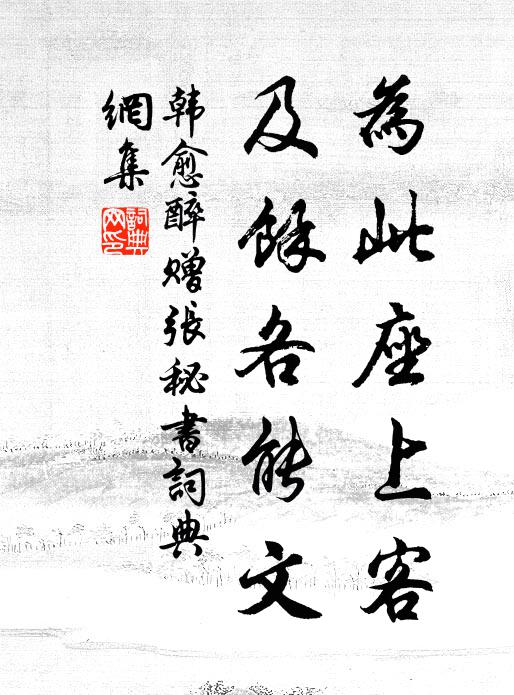 為此座上客
及餘各能文
韓愈醉贈張秘書詞典
網集
詞典
网印